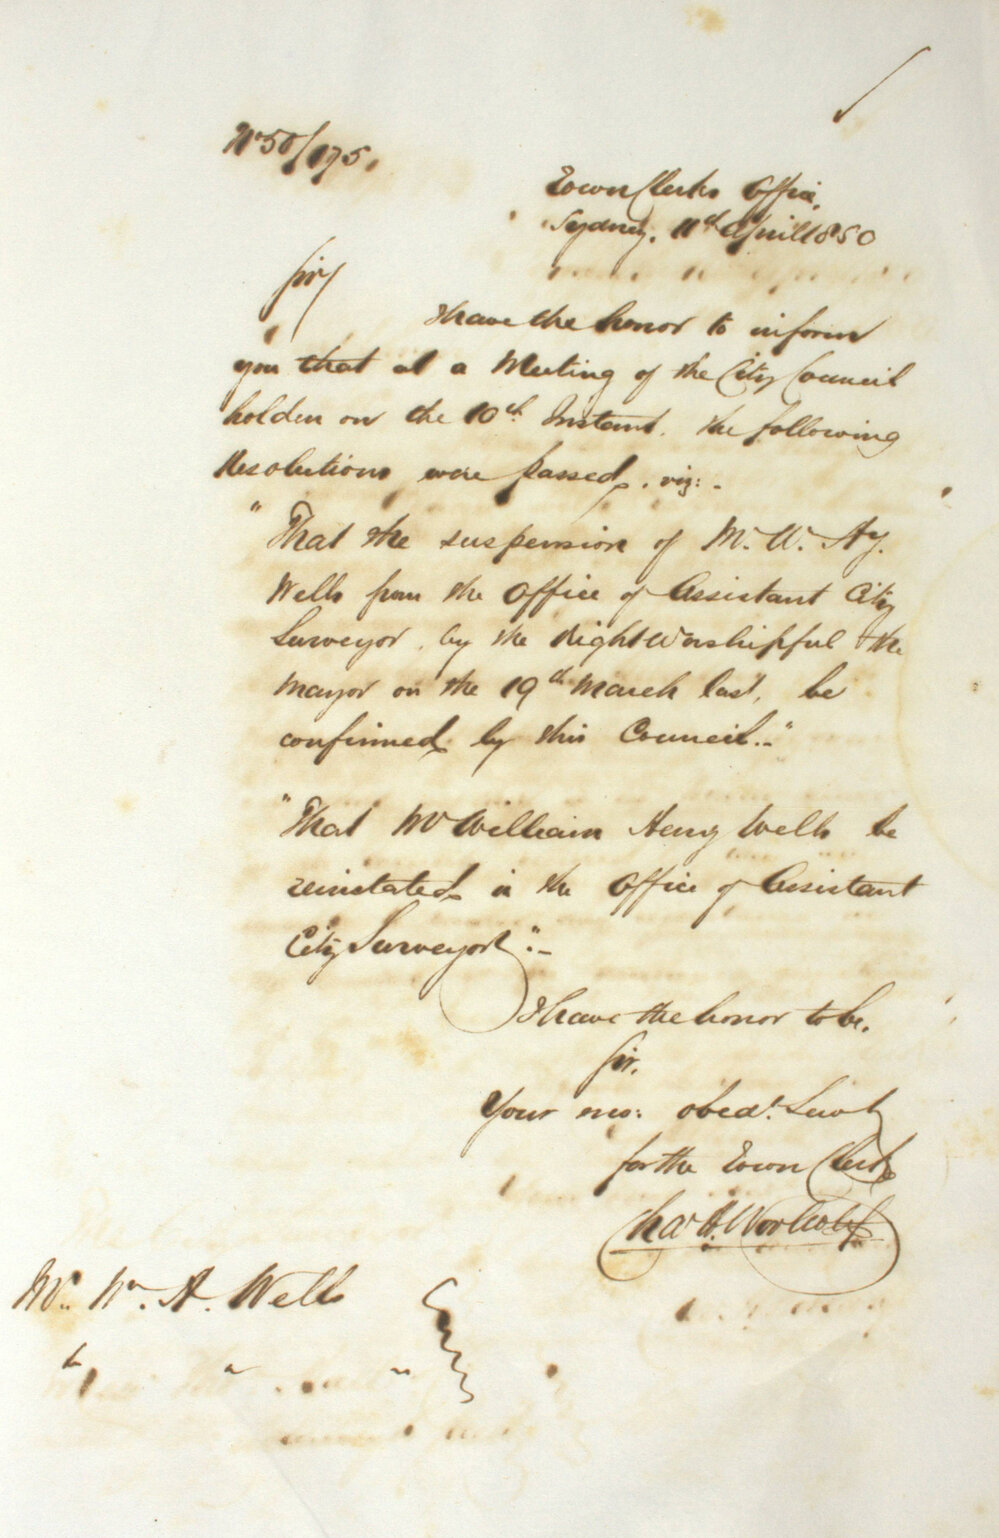 No 50/175.
Town Clerks Office,
Sydney, 11th April 1850
Sir/
I have the honor to inform
you that at a Meeting of the City Council
holden on the 10th Instant, the following
Resolutions were passed, viz: -
"That the suspension of Mr. W. Hy.
Wells from the Office of Assistant City
Surveyor, by the Right Worshipful the
Mayor on the 19th March last, be
confirmed by this Council.-"
"That Mr William Henry Wells be
reinstated in the Office of Assistant
City Surveyor".-
I have the honor to be,
Sir,
Your mo: obedt. Servt
for the Town Clerk
Chas H. Woolcott
Mr. Wm. H. Wells
" " "